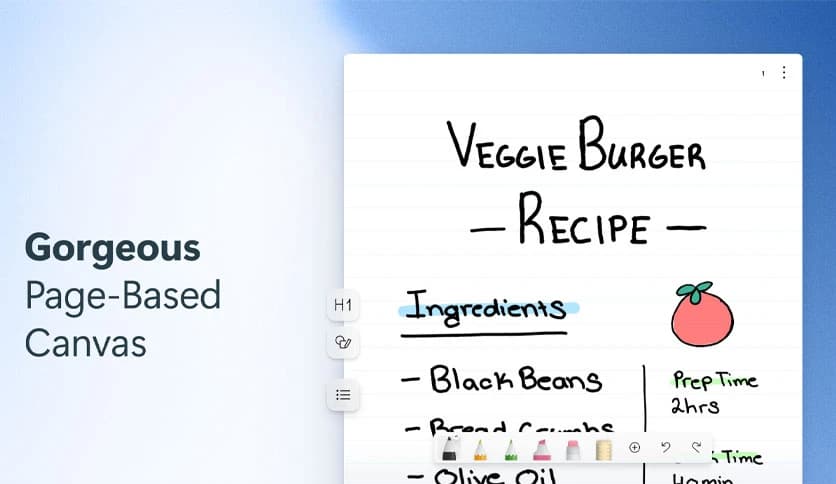 Gorgeous
Page-Based
Canvas
1
VEGGIE BURGER
– RECIPE –
H1
Ingredients
– Black Beans
– Bread Crumbs
– Olive Oil
Prep Time
2hrs
Time